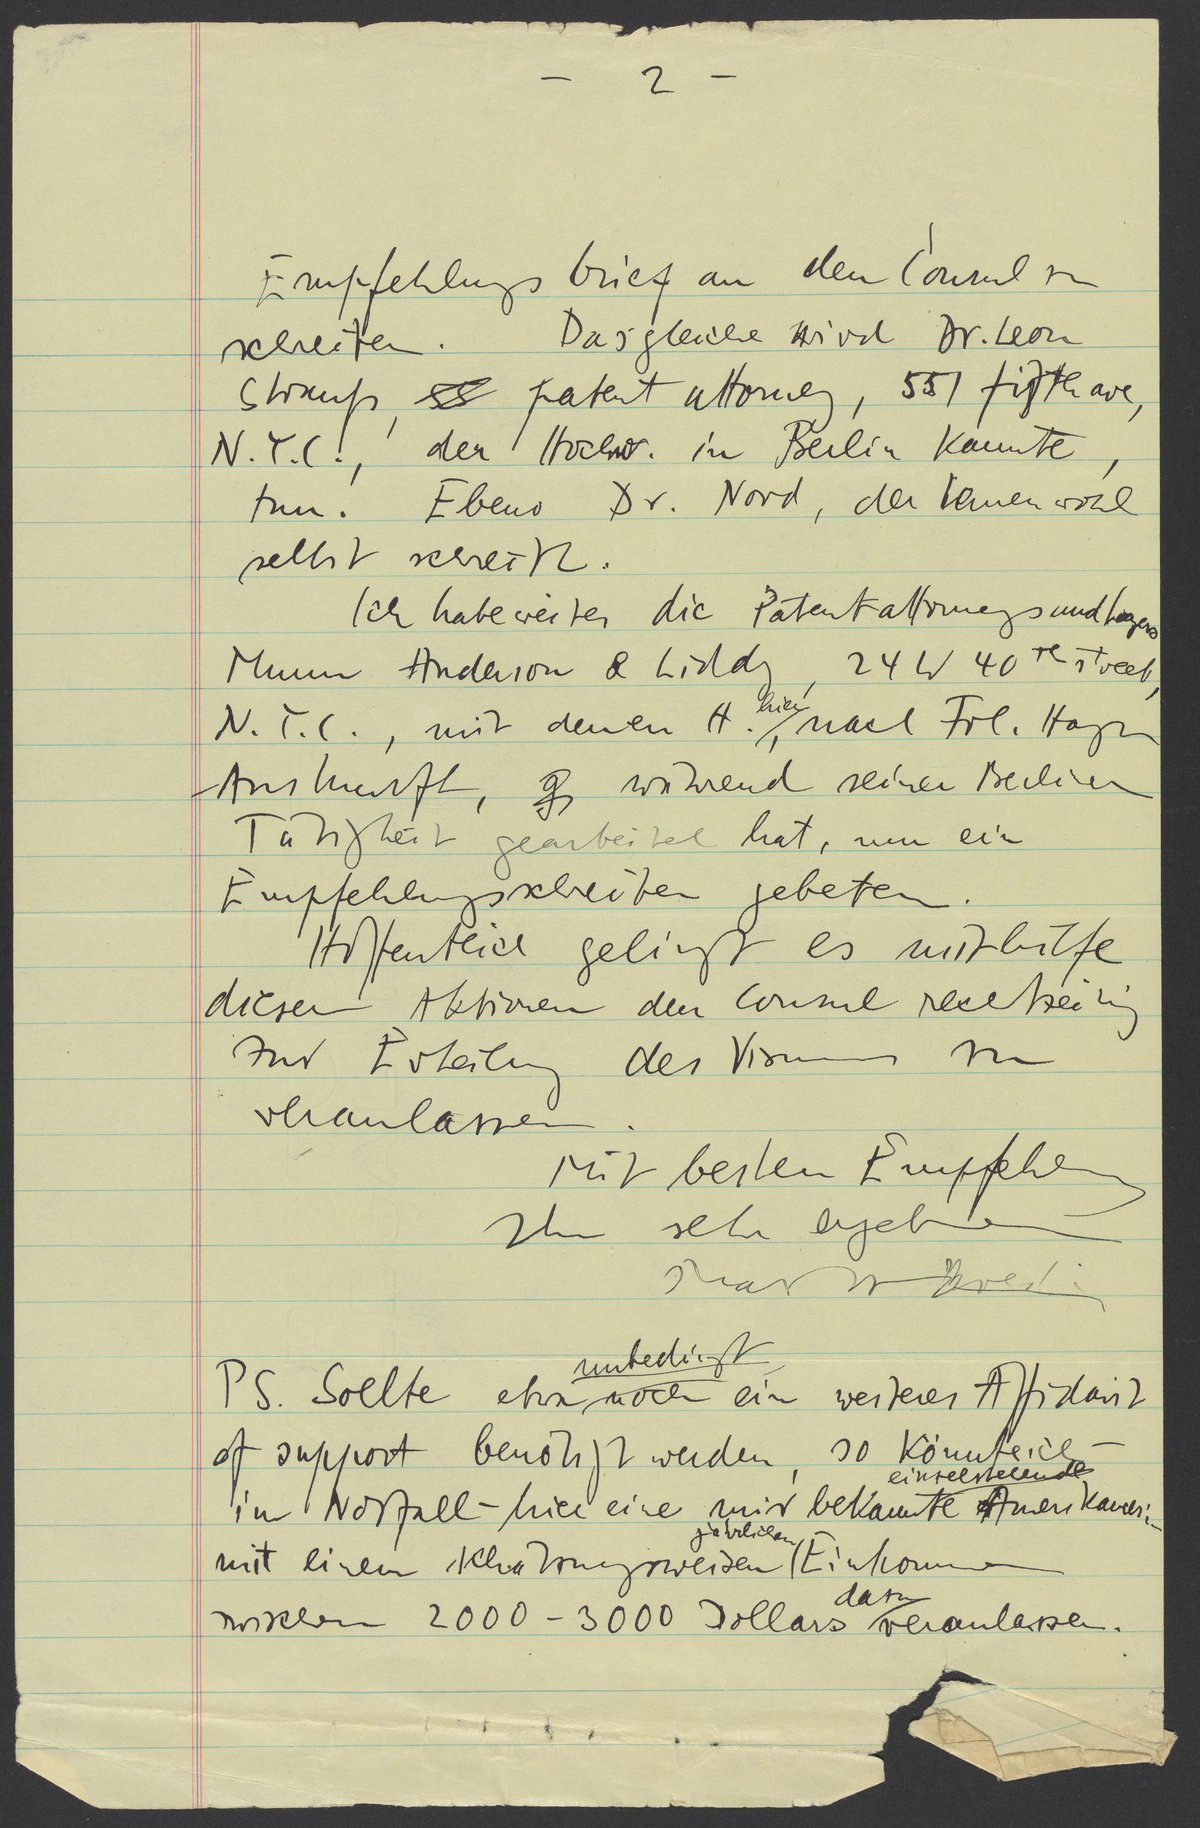 - 2 -
Empfehlungsbrief an den Consul zu
schreiben. Dasgleiche wird Dr. Leon
patent attorney, 551 fifth ave,
N.Y.C., der Hochw. in Berlin kannte,
tun. Ebenso Dr. Nord, der Ihnen wohl
selbst schreibt.
Ich habe weiter die Patentattorneys und Lawyers
Munn Anderson & Liddy, 24 W 40 th street,
N.Y.C., mit denen H. hier, nach Frl. Hagen
Auskunft, während seiner Berliner
Tätigkeit gearbeitet hat, um ein
Empfehlungsschreiben gebeten.
Hoffentlich gelingt es mithilfe
dieser Aktionen den Consul rechtzeitig
zur Erteilung des Visums zu
veranlassen.
Mit besten Empfehlungen
Ihr sehr ergebener
unbedingt
PS. Sollte etwa noch ein weiteres Affidavit
of support benötigt werden, so könnte ich -
einzelstehende
im Notfall - hier eine mir bekannte Amerikanerin
jährlichen
mit einem schätzungsweisen Einkommen
dazu
zwischen 2000 - 3000 Dollars veranlassen.